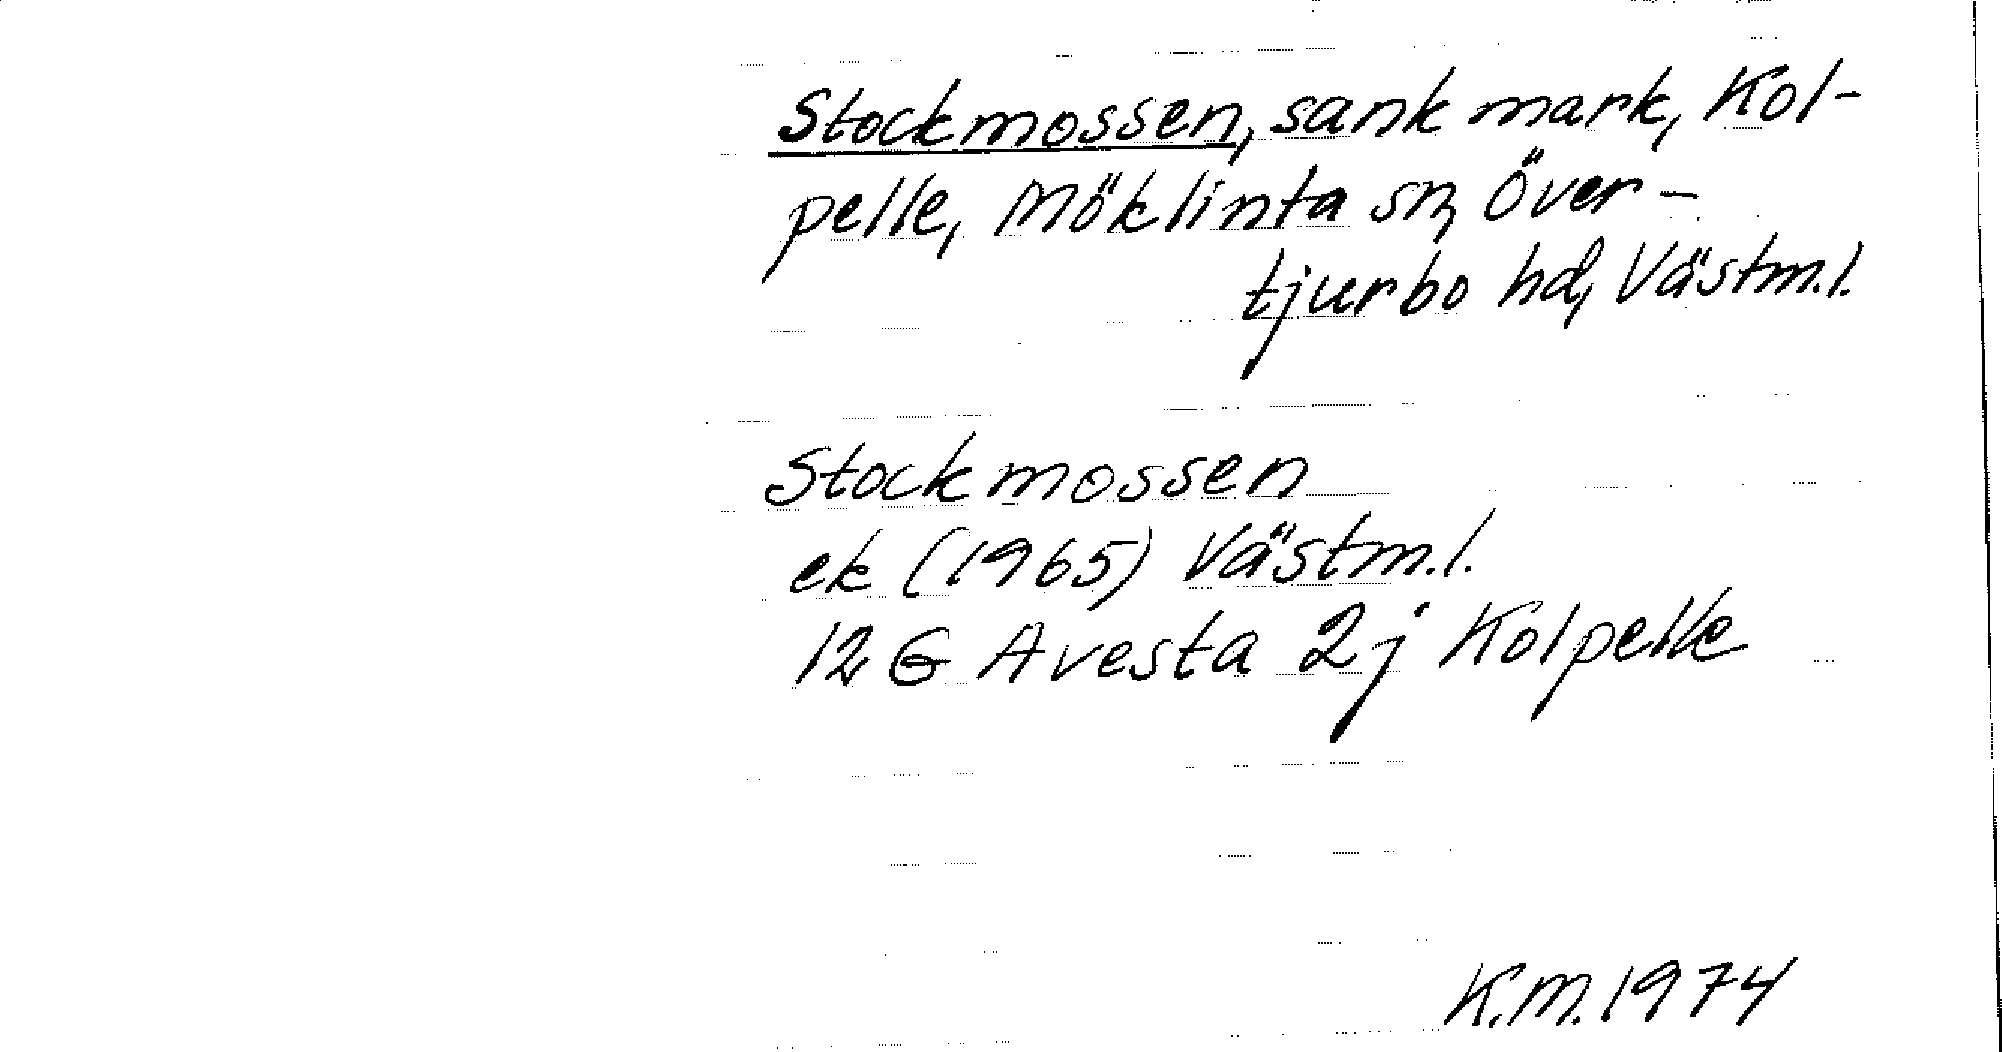 Stockmossen, sank mark, Kol-
pelle, Möklinta sn, Över-
tjurbo hd, Västm.l.
Stockmossen
ek (1965) Västm.l.
12 G Avesta 2j Kolpelle
K.M. 1974